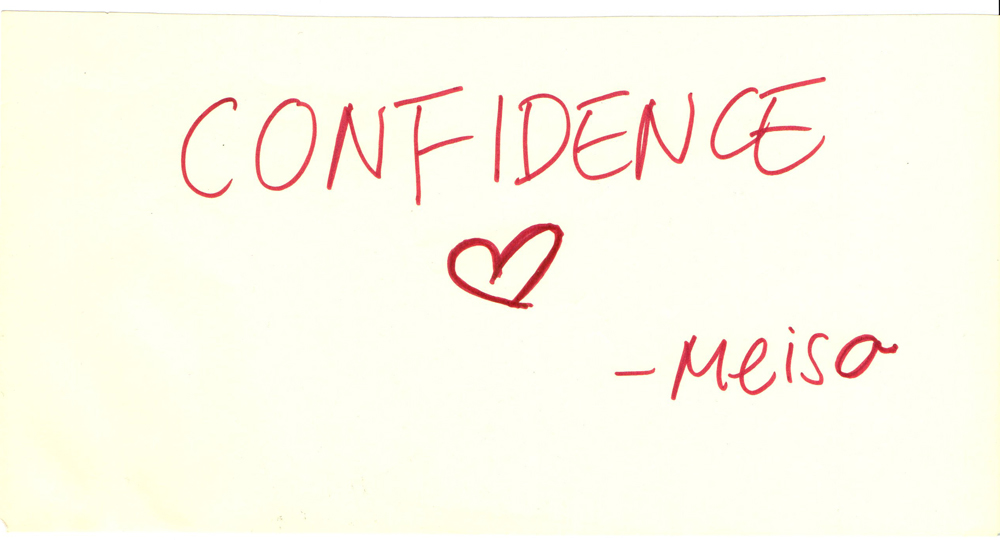 CONFIDENCE
-Meisa